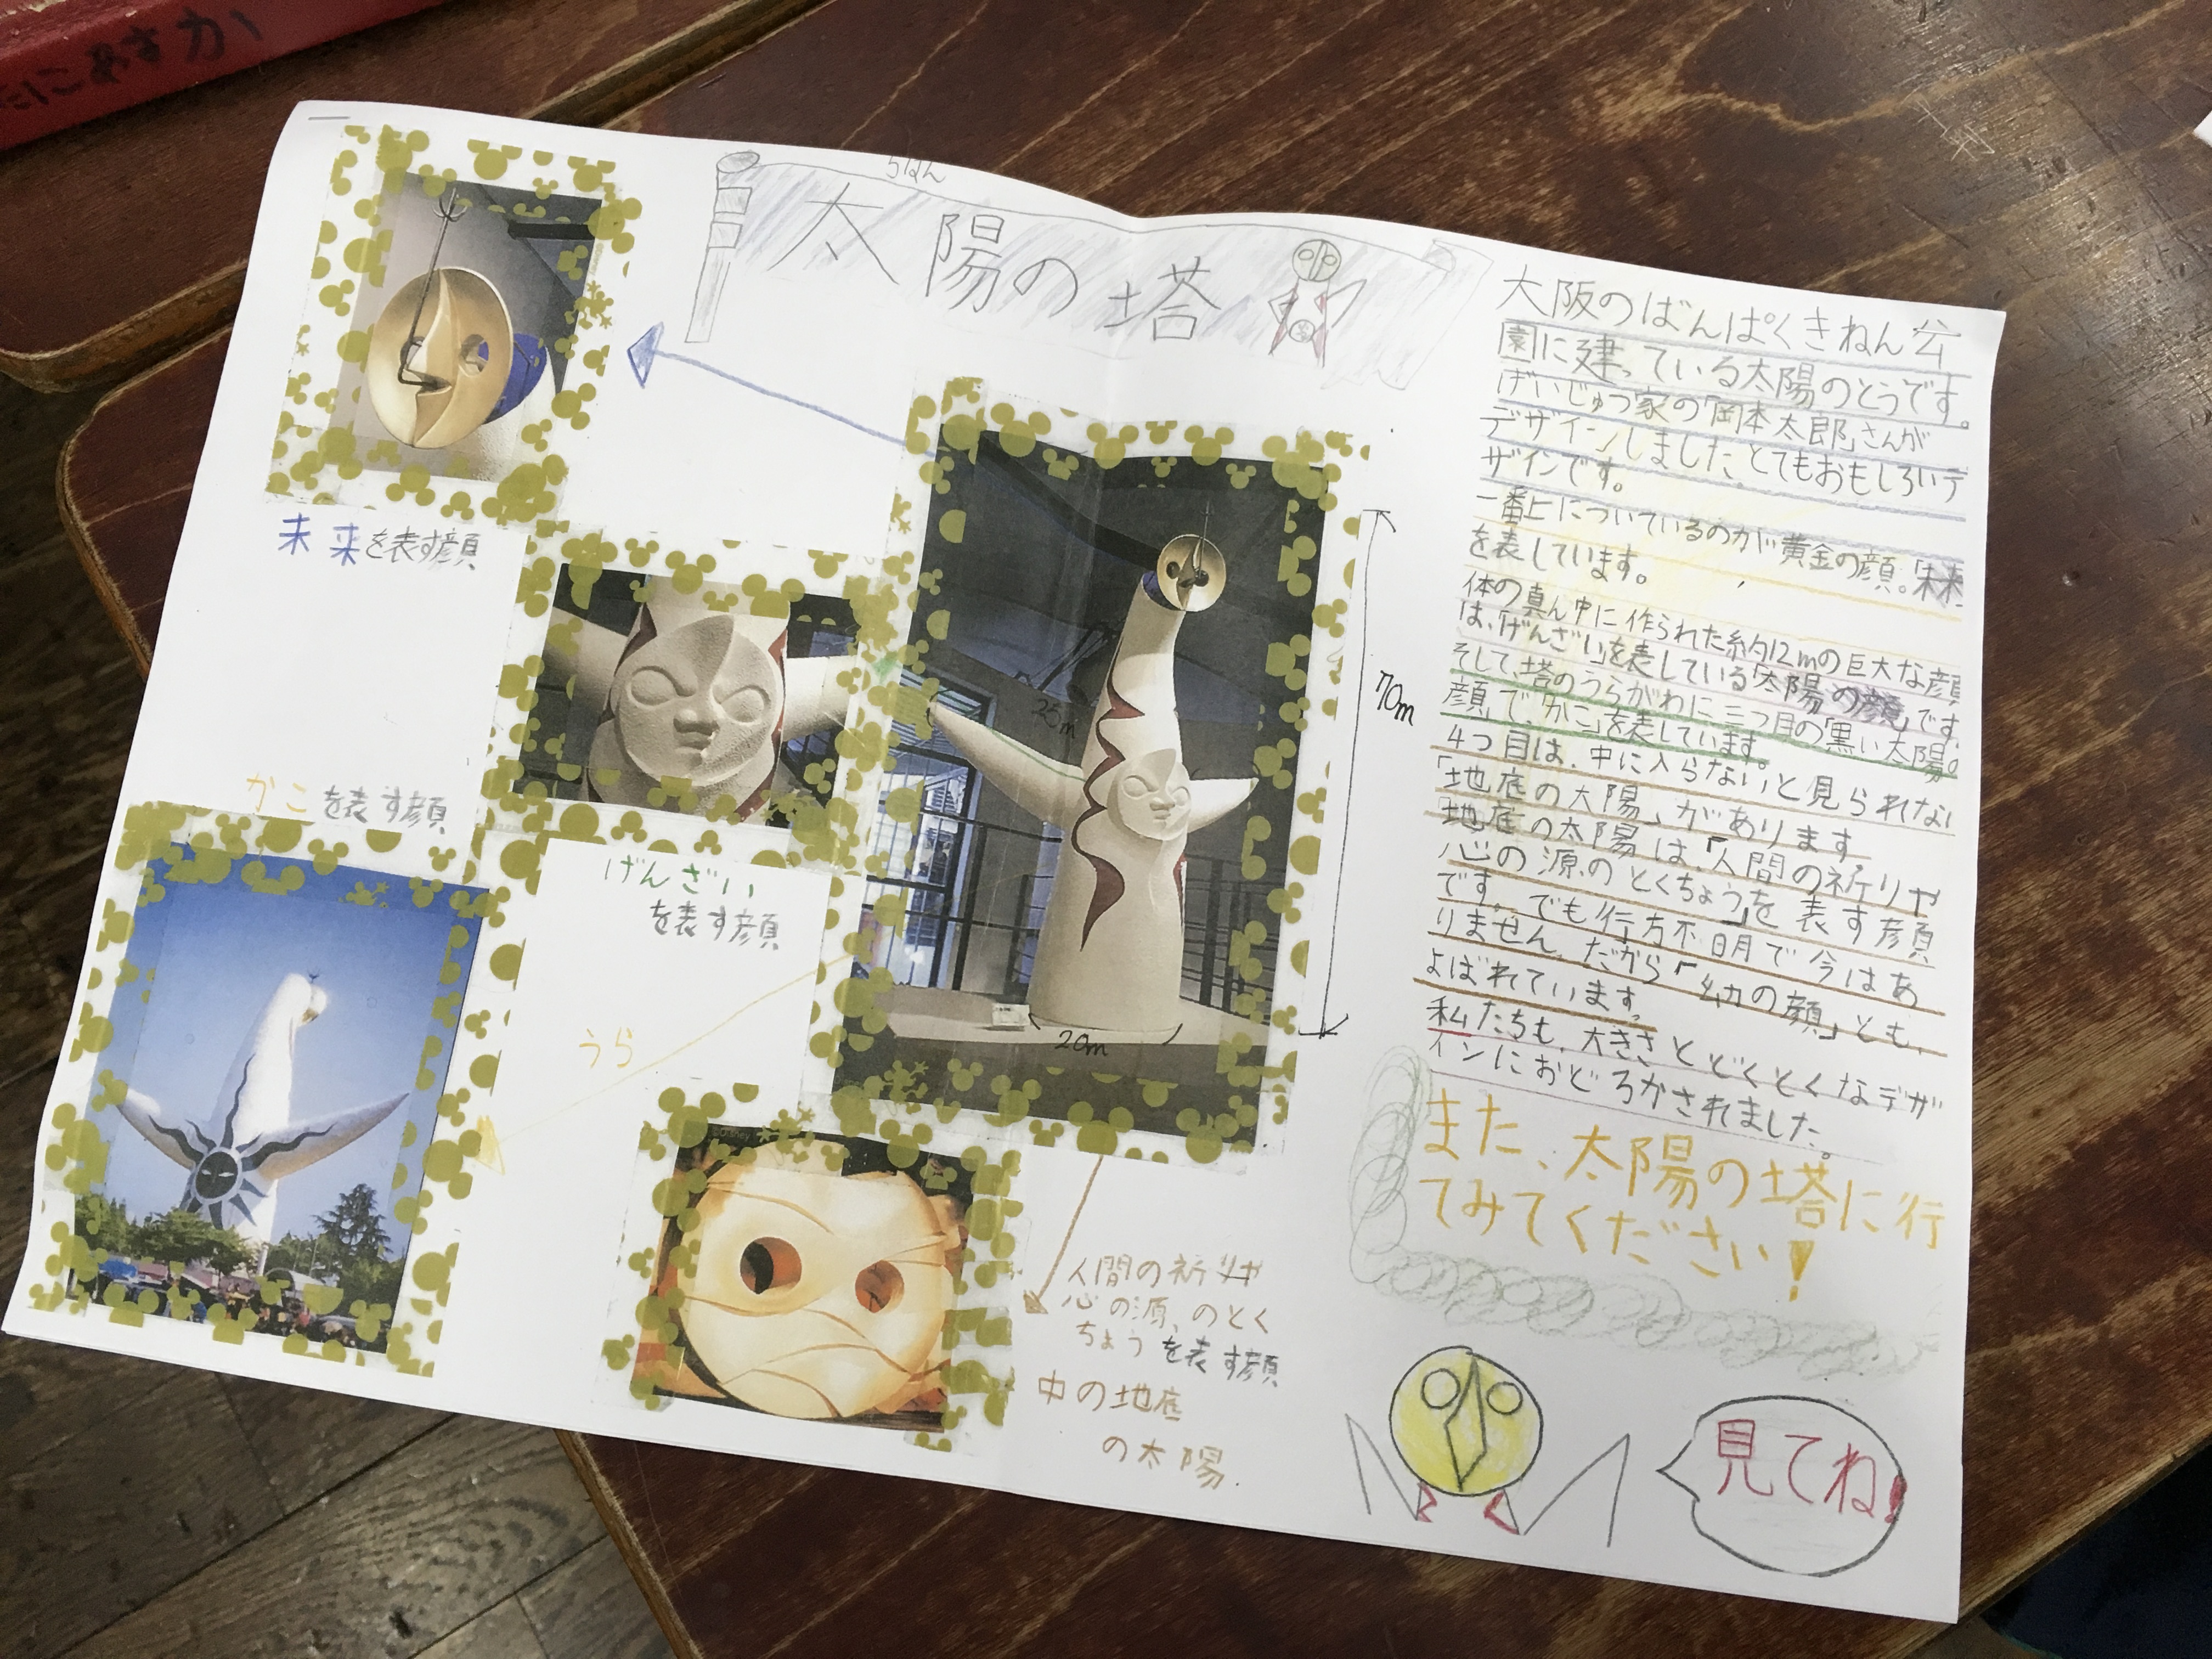 たにあさか
5はん
太陽の塔
大阪のばんぱくきねん公
園に建っている太陽のとうです。
げいじゅつ家の「岡本太郎」さんが
デザインしました。とてもおもしろいデ
ザインです。
一番上についているのが黄金の顔。「未来
を表しています。
体の真ん中に作られた約12mの巨大な顔
は、「げんざい」を表している「太陽の顔」です
そして、塔のうらがわに三つ目の「黒い太陽。
顔」で、「かこ」を表しています。
4つ目は、中に入らないと見られない
「地底の太陽」があります
「地底の太陽は、「人間の祈りや
心の源のとくちょう」を表す顔
です。でも行方不明で今はあ
りません。だから「幻の顔」とも、
よばれています。
私たちも、大きさとどくとくなデザ
インにおどろかされました。
また、太陽の塔に行
てみてください!
見てね!
未来を表す顔
げんざい
を表す顔
かこを表す顔
うら
70m
25m
20m
人間の祈りや
心の源、のとく
ちょうを表す顔
中の地底
の太陽.